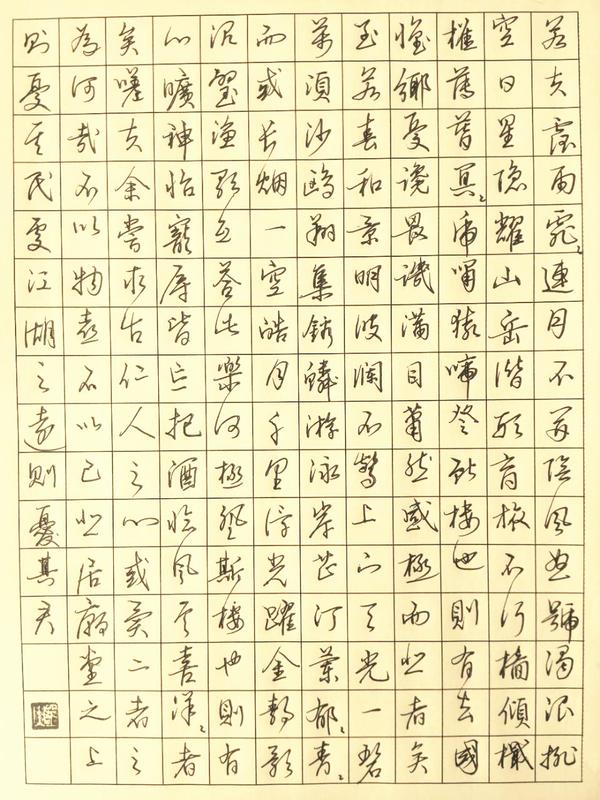 若夫霪雨霏〻連月不開陰風怒號濁浪排
空日星隱耀山岳潛形商旅不行檣傾檝
摧薄暮冥〻虎嘯猿啼登斯樓也則有去國
懷鄉憂讒畏譏滿目蕭然感極而悲者矣
至若春和景明波瀾不驚上下天光一碧
萬頃沙鷗翔集錦鱗游泳岸芷汀蘭郁〻青〻
而或長烟一空皓月千里浮光躍金靜影
沉璧漁歌互答此樂何極登斯樓也則有
心曠神怡寵辱皆忘把酒臨風其喜洋〻者
矣嗟夫余嘗求古仁人之心或異二者之
為何哉不以物喜不以己悲居廟堂之上
则憂其民處江湖之遠则憂其君